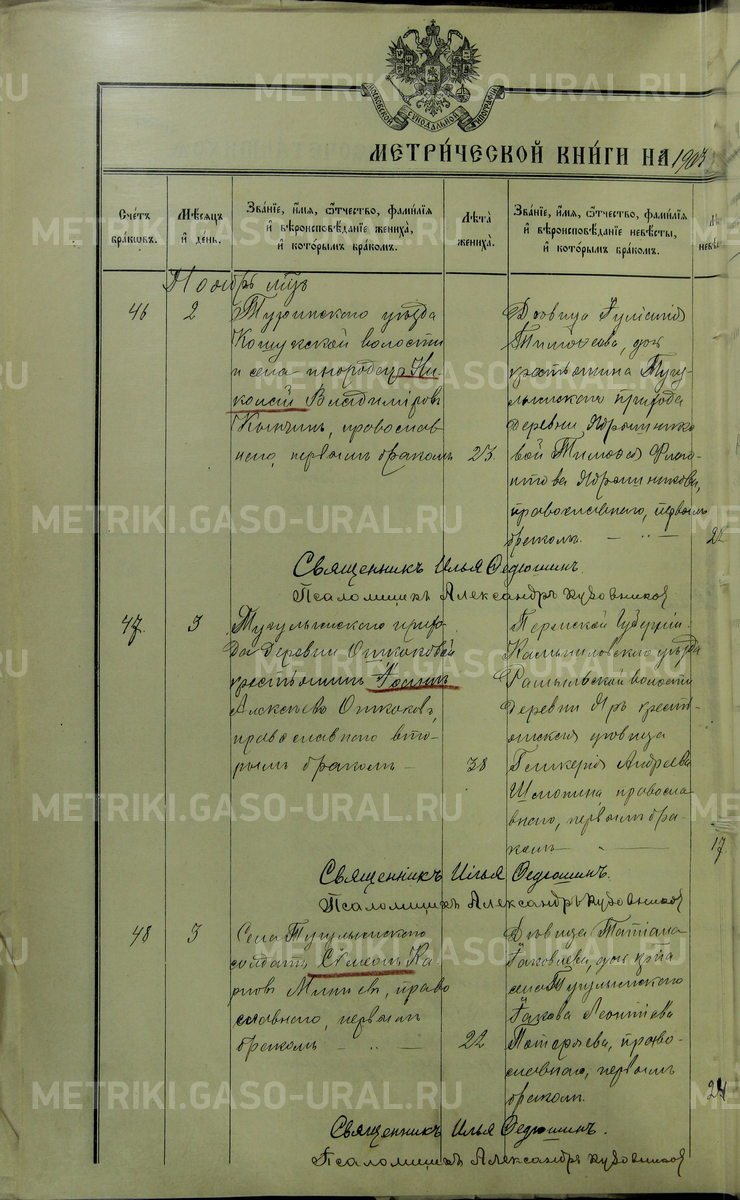 МЕТРИ́ЧЕСКОЙ КНИ́ГИ НА 1903
Сче́тъ бра́кωвъ.
Мѣ́сяцъ и҆ де́нь.
Зва́нїе, и҆́мя, ѻ҆́тчество, фами́лїя и҆ вѣроисповѣ́данїе жениха̀, и҆ кото́рымъ бра́комъ.
Лѣ́та жениха̀.
Зва́нїе, и҆́мя, ѻ҆́тчество, фами́лїя и҆ вѣроисповѣ́данїе невѣ́сты, и҆ кото́рымъ бра́комъ.
Ноябрь мцъ
46
2
Туринскаго уѣзда
Кошукской волости
и села инородецъ Ни-
колай Владиміровъ
православ-
наго, первымъ бракомъ
23
Дѣвица Іуліанія
Тимоѳеева, дочь
крестьянина Тугу-
лымскаго прихода
деревни Ядрышнико-
вой Тимоѳея
Ядрышникова,
православнаго, первымъ
бракомъ. — „ —
Священникъ Илья Ѳедюшинъ.
Псаломщикъ Александръ Кузовниковъ
47
3
Тугулымскаго прихо-
да деревни
крестьянинъ Іоаннъ
Алексѣевъ
православнаго вто-
рымъ бракомъ —
38
Пермской Губерніи
Камышловскаго уѣзда
волости
деревни Яръ крест-
янская дѣвица
Гликерія Андреева
православ-
наго, первымъ бра-
комъ — „ —
17
Священникъ Илья Ѳедюшинъ.
Псаломщикъ Александръ Кузовниковъ
48
3
Села Тугулымскаго
солдатъ Сѵмеонъ Кар-
повъ Минѣевъ, право-
славнаго, первымъ
бракомъ — „ —
22
Дѣвица Татіана
Іаковлева, дочь кр-на
села Тугулымскаго
Іакова Леонтіева
право-
славнаго, первымъ
бракомъ.
24
Священникъ Илья Ѳедюшинъ.
Псаломщикъ Александръ Кузовниковъ
METRIKI.GASO-URAL.RU